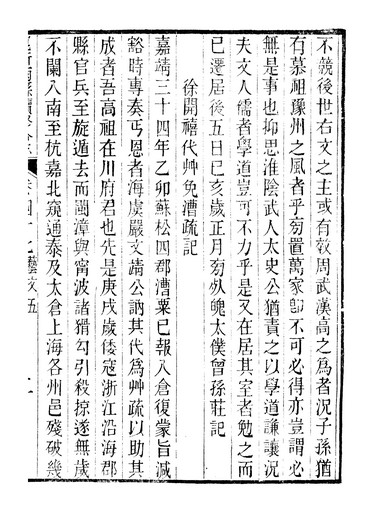 不競後世右文之主或有效周武漢高之爲者況子孫猶
有慕祖豫州之風者乎夯置萬家卽不可必得亦豈謂必
無是事也抑思淮陰武人太史公猶責之以學道謙讓況
夫文人儒者學道豈可不力乎是又在居其室者勉之而
已遷居後五日己亥歲正月夯魄太僕曾孫莊記
徐開禧代艸免漕疏記
嘉靖三十四年乙卯蘇松四郡漕粟已報入倉復蒙旨減
豁時專奏丐恩者海虞嚴文靖公訥其代爲艸疏以助其
成者吾高祖在川府君也先是庚戌歲倭寇浙江沿海郡
縣官兵至旋遁去而閩漳與甯波諸猾勾引殺掠遂無歲
不闌入南至杭嘉北窺通泰及太倉上海各州邑殘破幾
藝文五